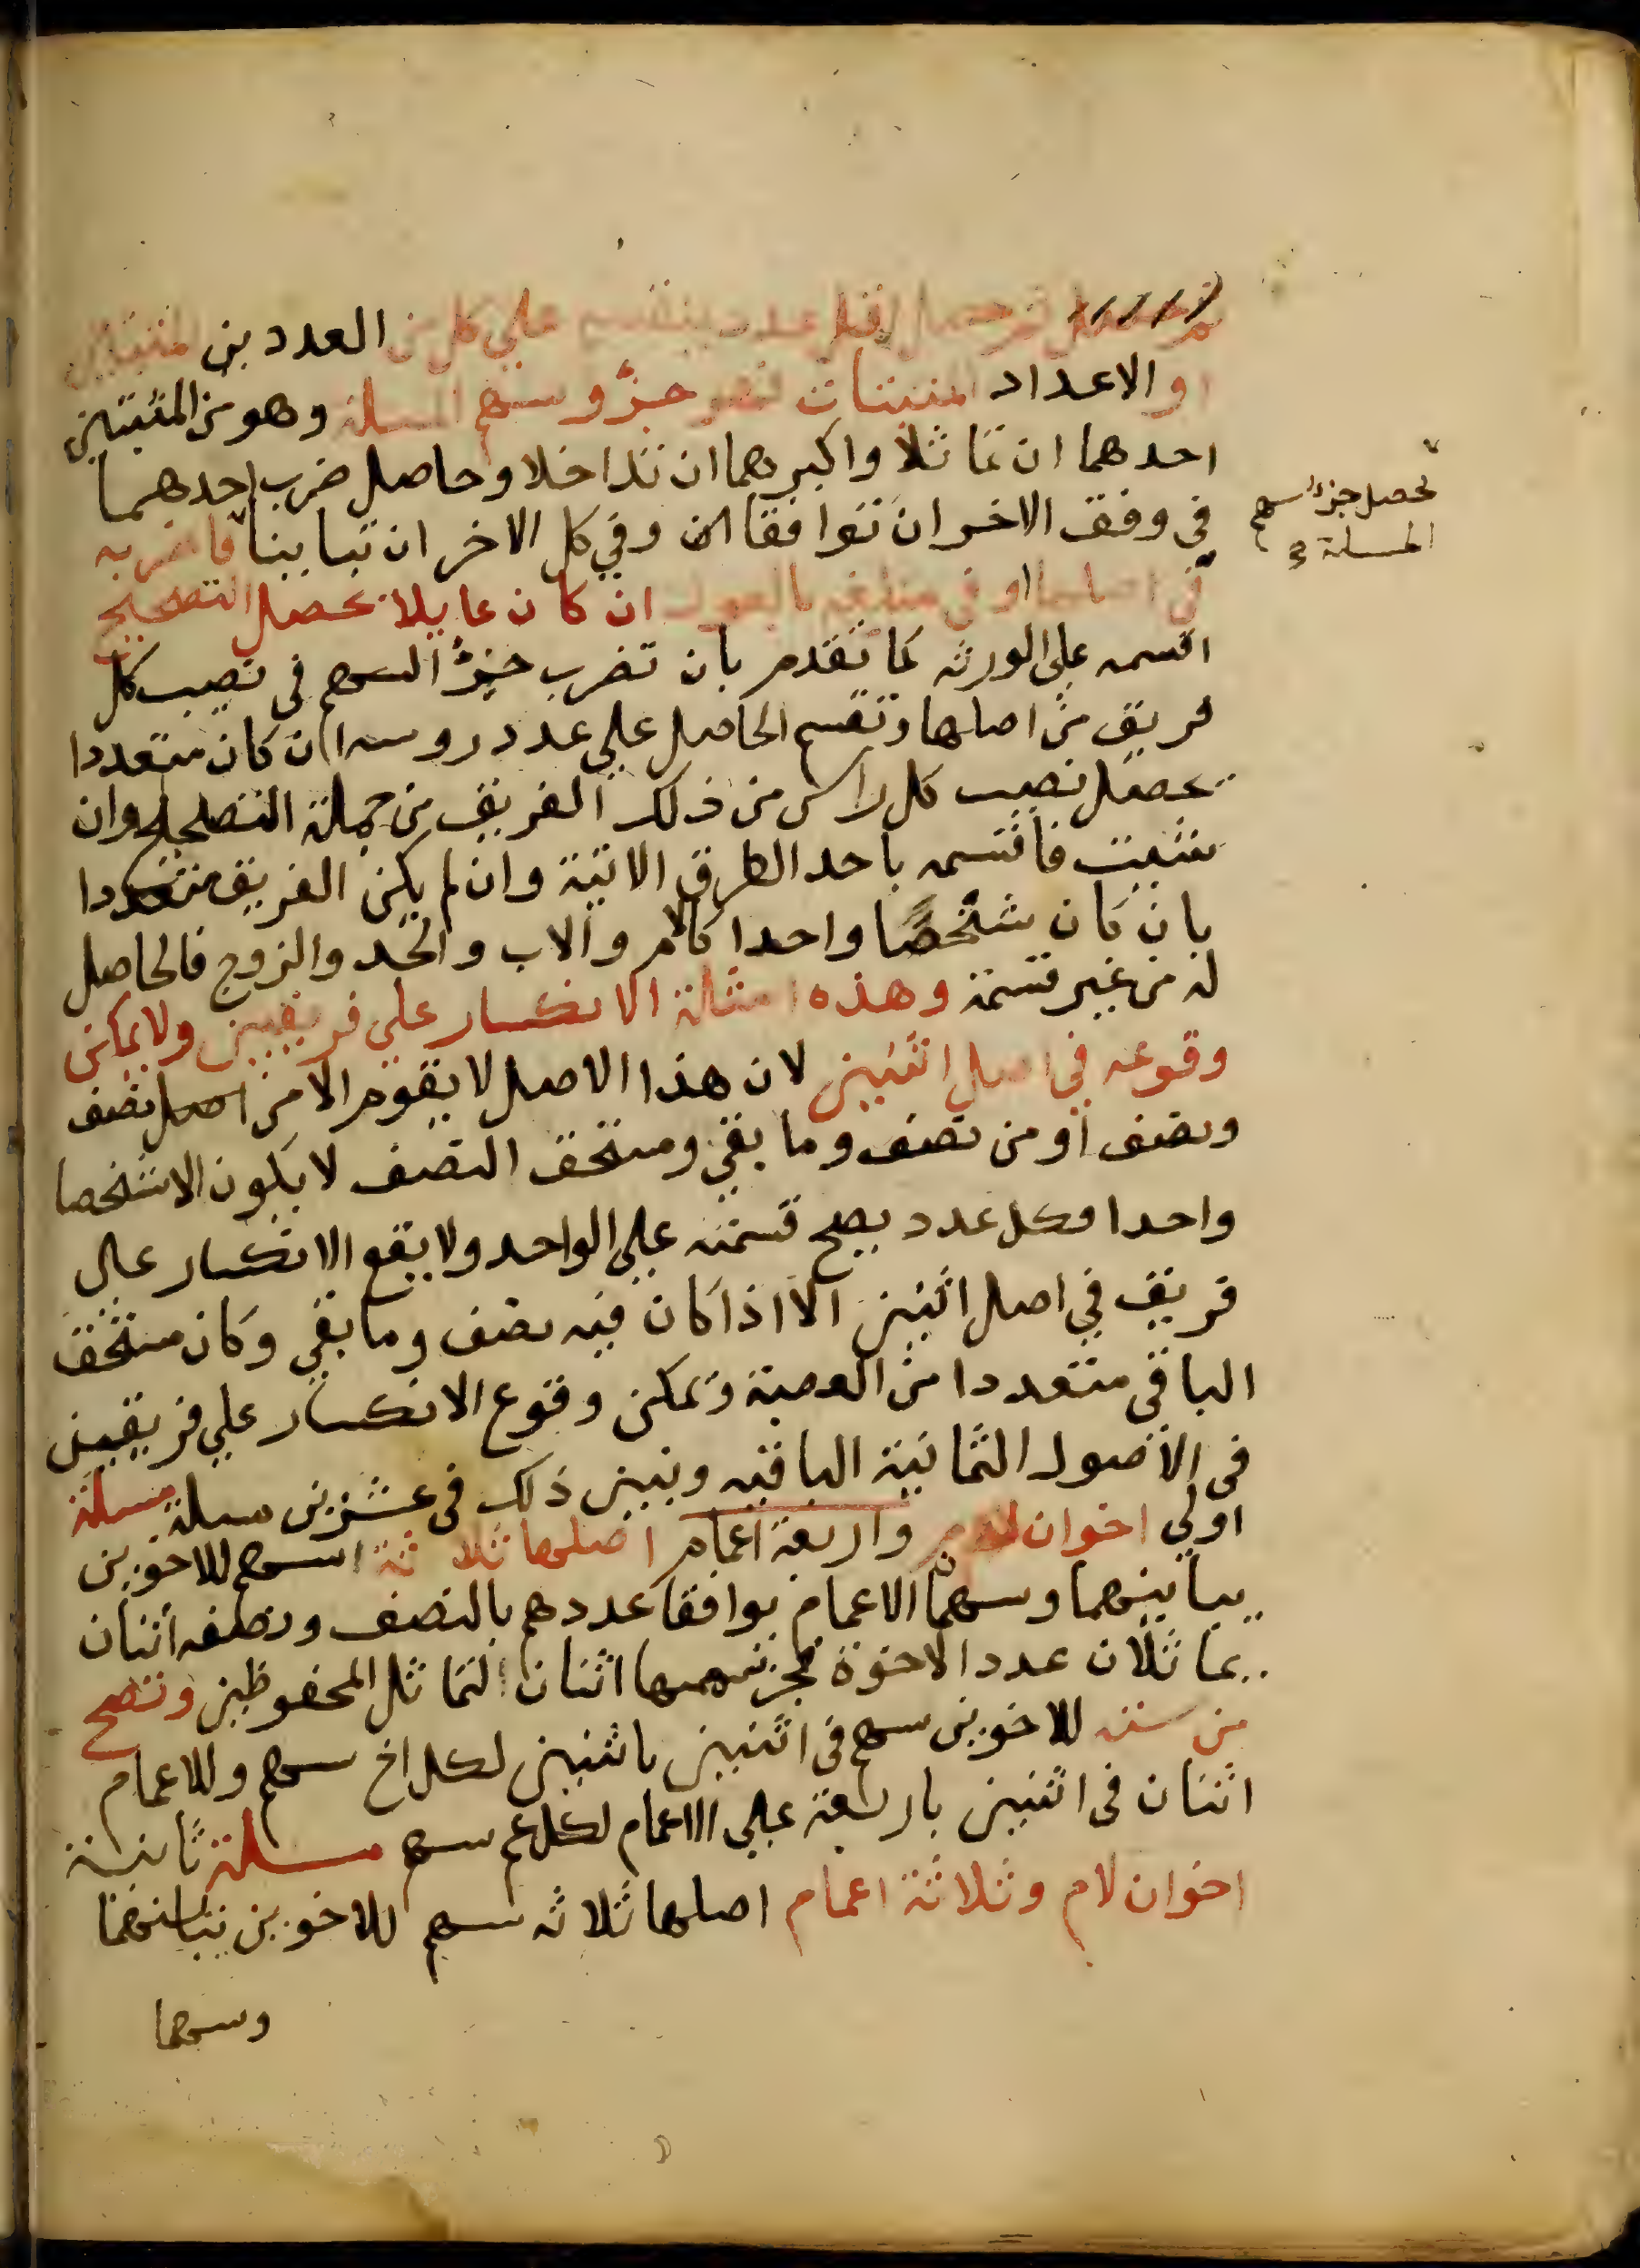 ثم حصل اقل عدد ينقسم على كل من العددين المثبتين
او الاعداد المثبتات فهو جزؤ سهم المسلة وهو من المثبتين
احدهما ان تماثلا واكبرهما ان تداخلا وحاصل ضرب احدهما
في وفق الاخر ان توافقا وفي كل الاخر ان تباينا فاضربه
في اصلها او في مبلغه بالعول ان كان عايلا يحصل التصحيح
اقسمه على الورثه كما تقدم بان تضرب جزؤ السهم في نصيب كل
فريق من اصلها وتقسم الحاصل علي عدد روسه ان كان متعددا
يحصل نصيب كل راس من ذلك الفريق من جملة التصحيح وان
شيت فاقسمه باحد الطرق الاتية وان لم يكن الفريق متعددا
بان كان شخصا واحدا كالام والاب والجد والزوج فالحاصل
له من غير قسمة وهذه امثلة الانكسار علي فريقين ولا يمكن
وقوعه في اصل اثنين لان هذا الاصل لا يقوم الا من اصل نصف
ونصف او من نصف وما بقي ومستحق النصف لا يكون الا شخصا
واحدا وكل عدد يصح قسمته علي الواحد ولا يقع الانكسار علي
فريق في اصل اثنين الا اذا كان فيه نصف وما بقي وكان مستحق
الباقي متعددا من العصبة ويمكن وقوع الانكسار علي فريقين
في الاصول الثمانية الباقيه ونبين ذلك في عشرين مسلة مسلة
اولي اخوان لام واربعة اعمام اصلها ثلاثة سهم للاخوين
يباينهما وسهما الاعمام يوافقا عددهم بالنصف ونصفه اثنان
يماثلان عدد الاخوة فجزء سهمها اثنان لتماثل المحفوظين وتصح
من سته للاخوين سهم في اثنين باثنين لكل اخ سهم وللاعمام
اثنان في اثنين باربعة علي الاعمام لكل عم سهم مسلة ثانية
اخوان لام وثلاثة اعمام اصلها ثلاثه سهم للاخوين يباينهما
وسهما
تحصل جزء سهم
المسلة